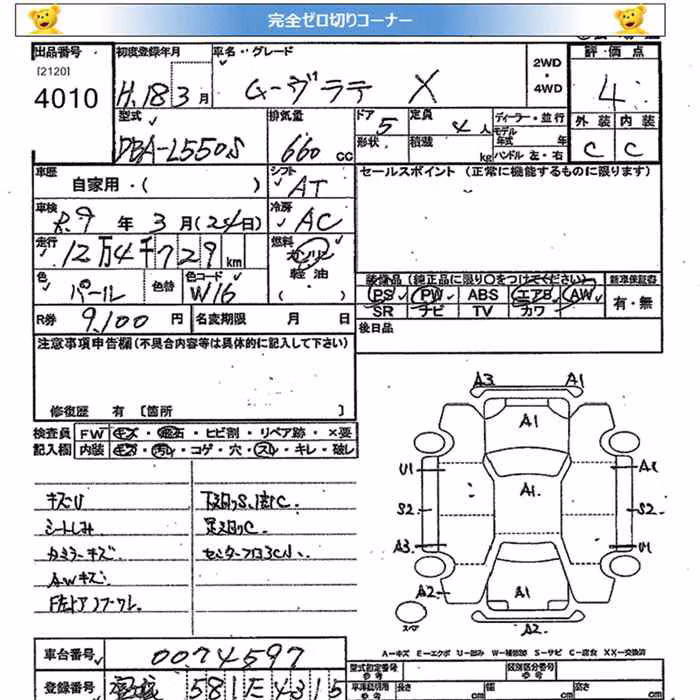 完全ゼロ切りコーナー
出品番号 初度登録年月 車名・グレード 2WD・4WD 評価点
[2120]
4010 H.18 3月 ムーヴラテ X 4
型式 排気量 ドア 5 定員 4人 ディーラー・並行 外装 内装
DBA-L550S 660cc 形状 積載 kg モデル年式 年 ハンドル 左・右 C C
車歴 自家用・( ) シフト AT セールスポイント (正常に機能するものに限ります)
車検 R.9年 3月(24日) 冷房 AC
走行 12万4千729km 燃料 ガソリン 軽油・( )
色 パール 色替 色コード W16 装備品(純正品に限り○をつけてください) 新車保証書
PS PW ABS エアB AW 有・無
R券 9,100円 名変期限 月 日 SR ナビ TV カワ
後日品
注意事項申告欄(不具合内容等は具体的に記入して下さい)
修復歴 有 [箇所 ]
検査員 FW キズ・飛石・ヒビ割・リペア跡・×要
記入欄 内装 キズ・汚れ・コゲ・穴・スレ・キレ・破レ
キズU 下廻りS、錆C.
シートしみ 足廻りC.
カミラーキズ センターフロアC小.
AWキズ
F左ドア
A3 A1
A1
U1 A1
S2 A1 S2
A3 U1
A2 A1
スペア A2
A-キズ E-エクボ U-凹み W-補修跡 S-サビ C-腐食 XX-交換済
車台番号 0074597 型式指定番号 参考 類別区分番号 参考
登録番号 581 E 4315 車庫証明用 参考 長さ cm 幅 cm 高さ cm